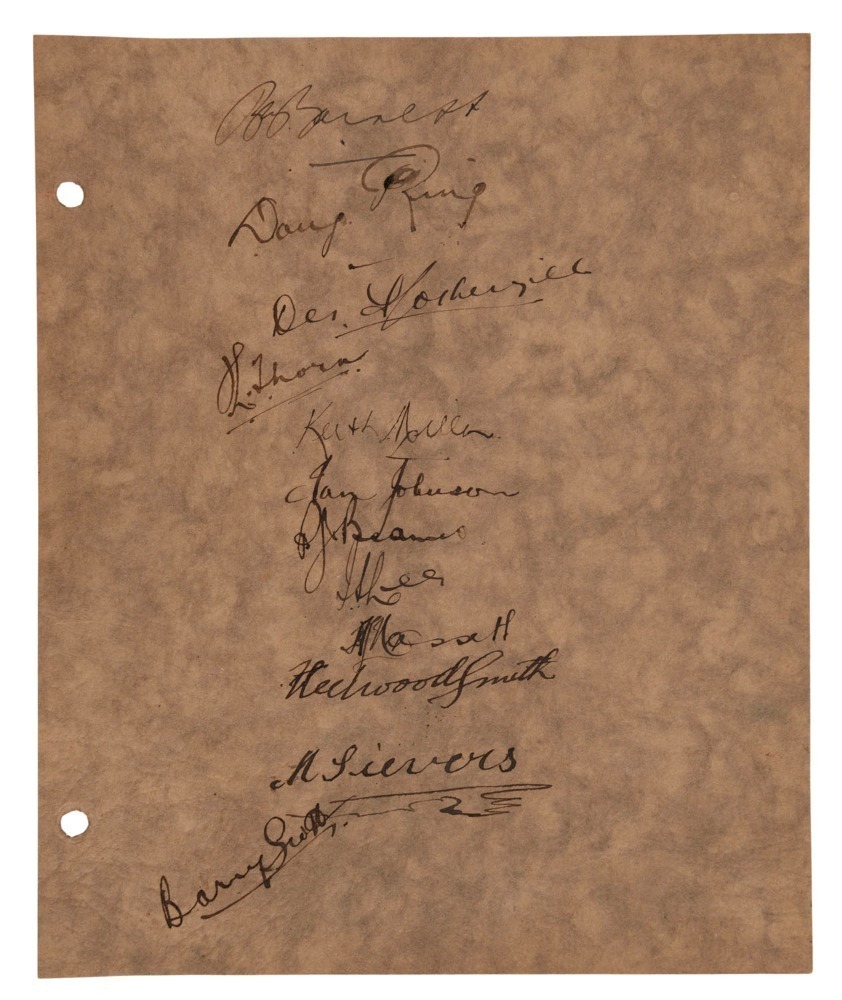 B. A. Barnett
Doug Ring
Des. Fothergill
F. L. Thorn
Keith Miller
Ian Johnson
P J Beames
I S Lee
H Massett
Fleetwood Smith
M Sievers
Barry Scott